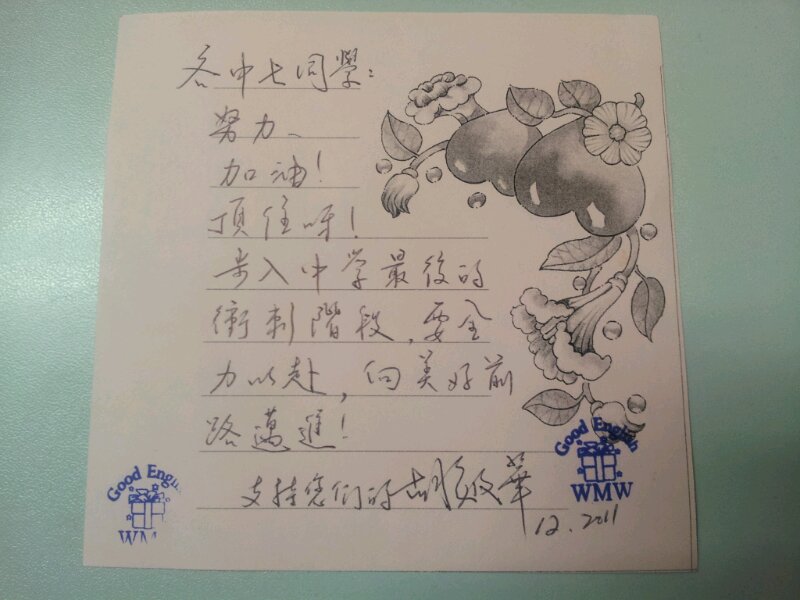 各中七同學:
努力、
加油!
頂住呀!
步入中学最後的
衝刺階段,要全
力以赴,向美好前
路邁進!
支持您們的胡
12.2011
Good English
WMW
Good Engli
WM